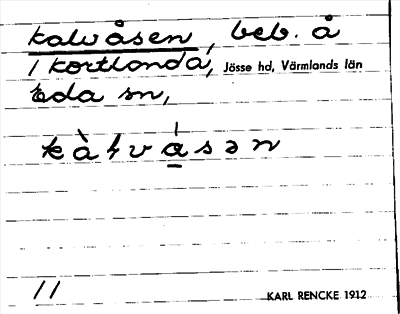 Kalvåsen, beb. å
1 Kortlanda, Jösse hd, Värmlands län
Eda sn,
kàɬvásən
11
KARL RENCKE 1912